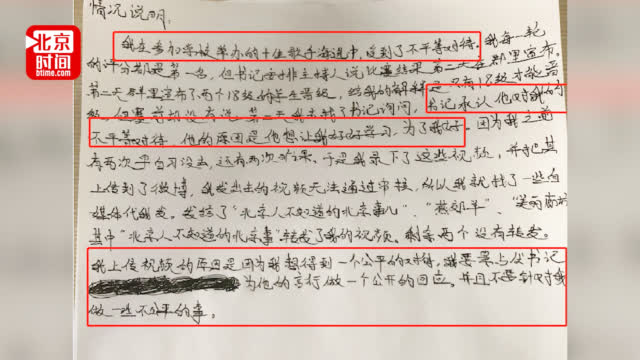 北京
时间
btime.com
情况说明:
我在参加学校举办的十佳歌手海选中,受到了不平等对待。我每一轮
的评分都是第一名,但书记安排主持人说比赛结果第二天在群里宣布。
第二天群里宣布了两个18级的学生晋级,给我的解释是只有18级才能晋
级,但赛前却没有说,第二天我去找了书记询问,书记承认他对我的
不平等对待,他的原因是他想让我好好学习,为了我好。因为我之前
有两次早自习没去,还有两次。于是我录下了这些视频,并把其
上传到了微博,我发出去的视频无法通过审核,所以我就找了一些自
媒体代我发。我找了“北京人不知道的北京事儿”、“燕郊羊”、
其中“北京人不知道的北京事”转发了我的视频。剩余两个没有转发。
我上传视频的原因是因为我想得到一个公平的对待。我要求书记
为他的言行做一个公开的回应。并且不要针对我
做一些不公平的事。